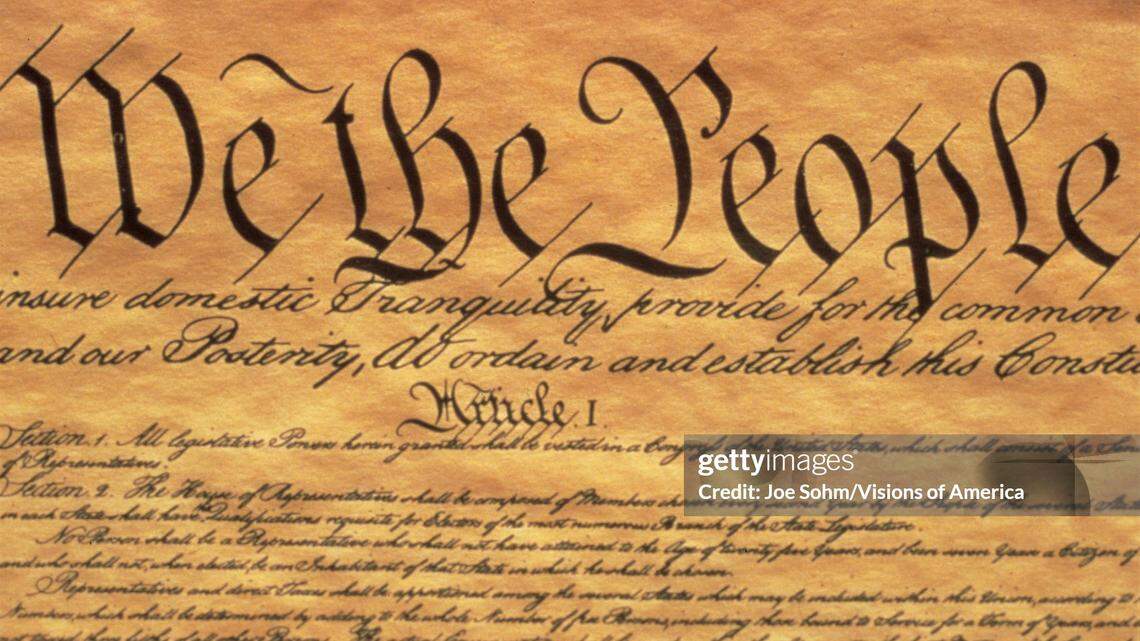 We the People
insure domestic Tranquility, provide for the common
and our Posterity, do ordain and establish this Constitu
Article. I.
Section. 1. All legislative Powers herein granted shall be vested in a Congress of the United States, which shall consist of a
of Representatives.
Section. 2. The House of Representatives shall be composed of Members chosen every second Year by the People of the several States
in each State shall have Qualifications requisite for Electors of the most numerous Branch of the State Legislature.
No Person shall be a Representative who shall not have attained to the Age of twenty five Years, and been seven Years a Citizen of
and who shall not, when elected, be an Inhabitant of that State in which he shall be chosen.
Representatives and direct Taxes shall be apportioned among the several States which may be included within this Union, according to
Numbers, which shall be determined by adding to the whole Number of free Persons, including those bound to Service for a Term of Years, and
gettyimages
Credit: Joe Sohm/Visions of America